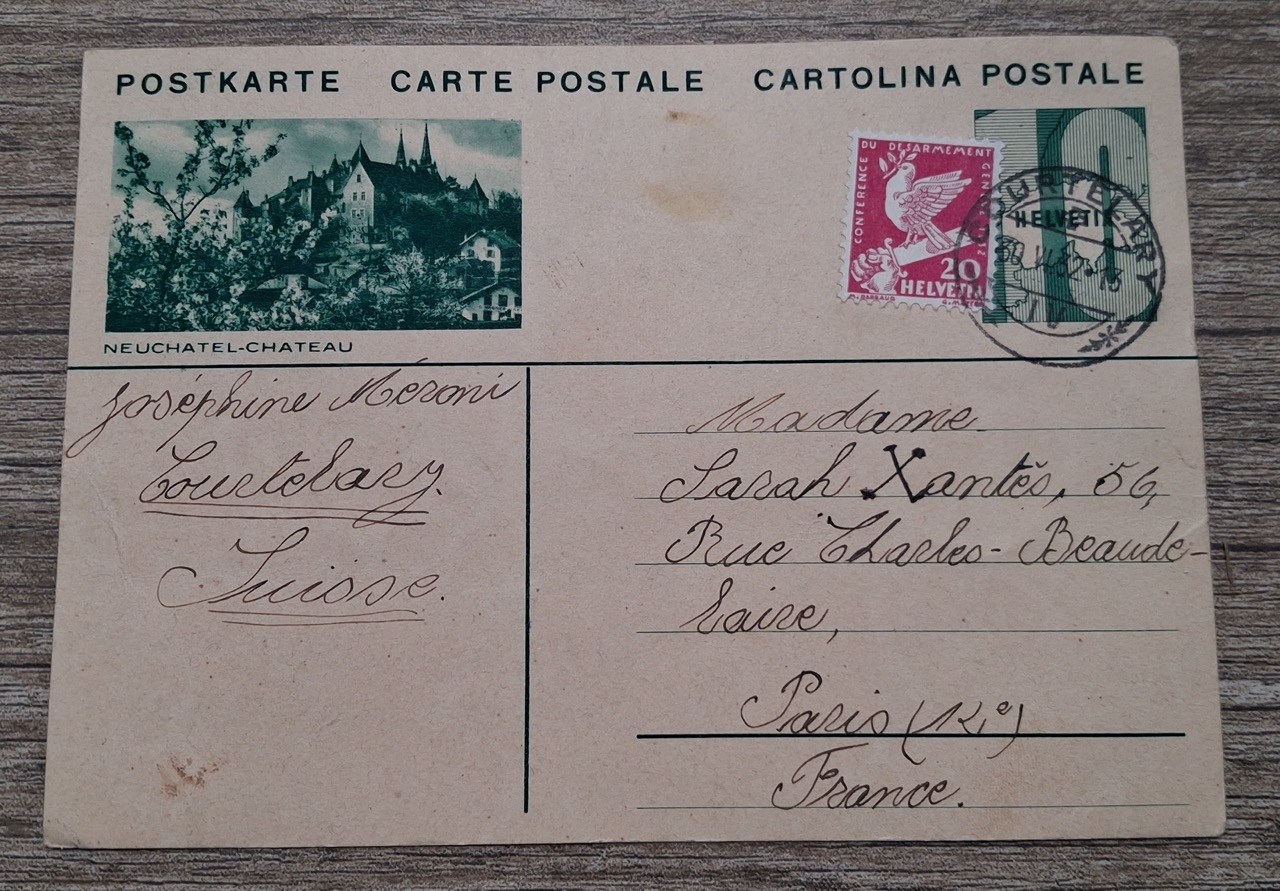 POSTKARTE CARTE POSTALE CARTOLINA POSTALE
NEUCHATEL-CHATEAU
CONFERENCE DU DESARMEMENT GENEVE 1932
20
HELVETIA
M. BARRAUD
10
HELVETIA
COURTELARY
32
Joséphine Méroni
Courtelary.
Suisse.
Madame
Sarah Xantès, 56,
Rue Charles-Beaude-
laire,
Paris
France.